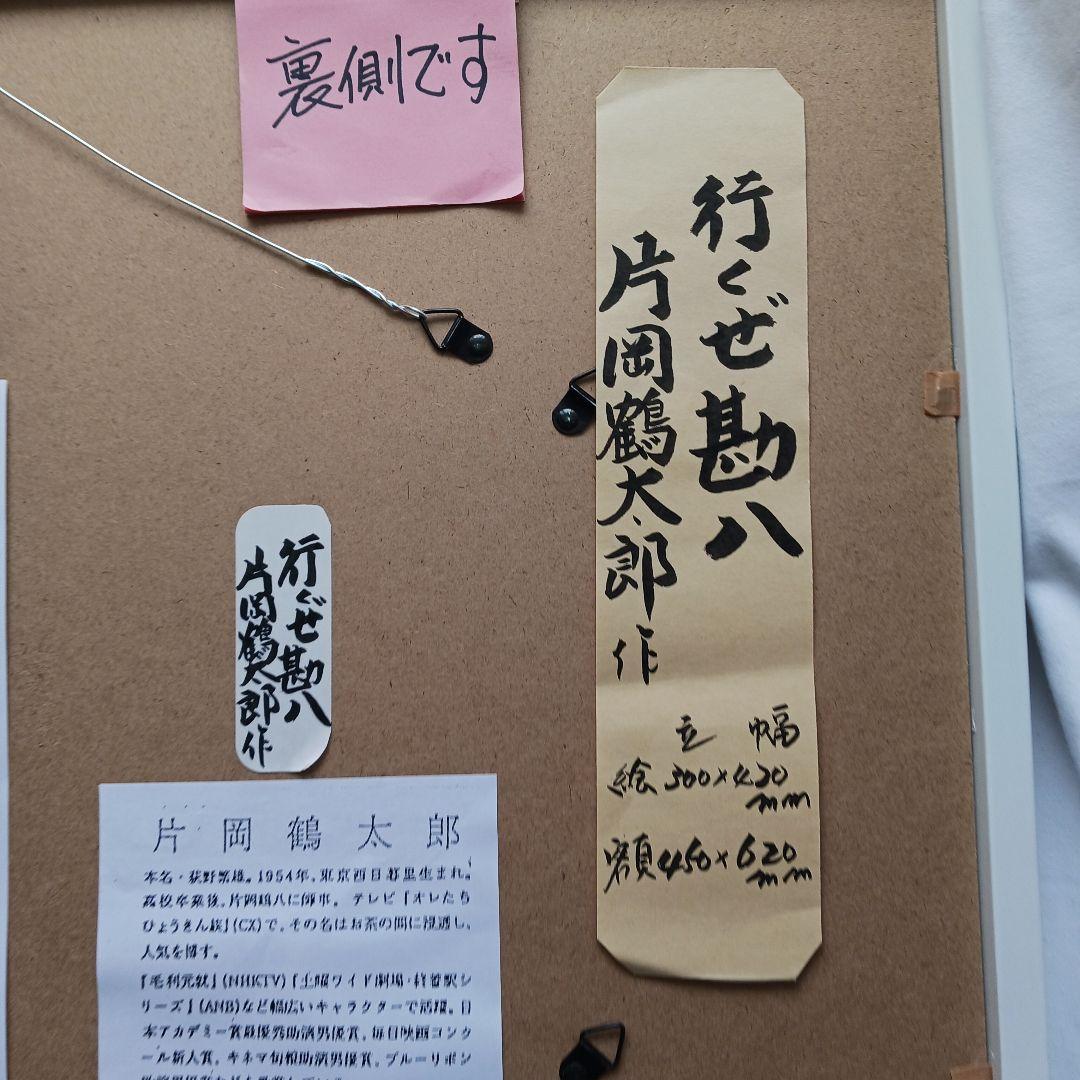 裏側です
行くぜ勘八
片岡鶴太郎作
立 幅
絵 300×420
mm
額 450×620
mm
行くぜ勘八
片岡鶴太郎作
片岡鶴太郎
本名・荻野繁雄。1954年、東京西日暮里生まれ。
高校卒業後、片岡鶴八に師事。テレビ「オレたち
ひょうきん族」(CX)で、その名はお茶の間に浸透し、
人気を博す。
「毛利元就」(NHKTV)「土曜ワイド劇場・終着駅シ
リーズ」(ANB)など幅広いキャラクターで活躍。日
本アカデミー賞最優秀助演男優賞、毎日映画コンク
ール新人賞、キネマ旬報助演男優賞、ブルーリボン